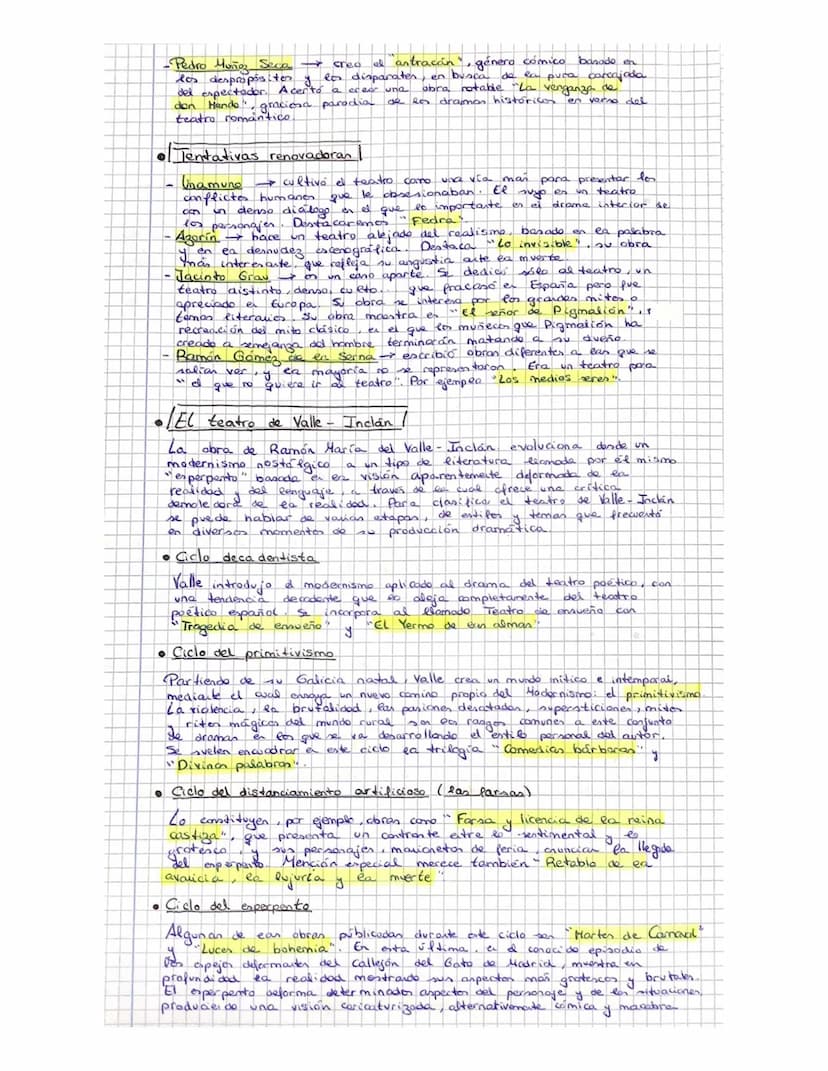 - Pedro Muñoz Seca → creo el "astracán", género cómico basado en
los despropósitos y los disparates, en busca de la pura carcajada
del espectador. Acertó a crear una obra notable "La venganza de
don Mendo", graciosa parodia de los dramas históricos en verso del
teatro romántico.
• Tentativas renovadoras
- Unamuno → cultivó el teatro como una vía más para presentar los
conflictos humanos que le obsesionaban. El suyo es un teatro
con un denso diálogo en el que lo importante es el drama interior de
los personajes. Destacaremos "Fedra".
- Azorín → hace un teatro alejado del realismo, basado en la palabra
y en la desnudez escenográfica. Destaca "Lo invisible", su obra
más interesante, que refleja su angustia ante la muerte.
- Jacinto Grau → es un caso aparte. Se dedicó sólo al teatro, un
teatro distinto, denso, culto... que fracasó en España pero fue
apreciado en Europa. Su obra se interesa por los grandes mitos o
temas literarios. Su obra maestra es "El señor de Pigmalión",
recreación del mito clásico, en el que los muñecos que Pigmalión ha
creado a semejanza del hombre terminarán matando a su dueño.
- Ramón Gómez de la Serna → escribió obras diferentes a las que se
solían ver, y la mayoría no se representaron. Era un teatro para
"el que no quiere ir al teatro". Por ejemplo "Los medios seres".
• El teatro de Valle-Inclán
La obra de Ramón María del Valle-Inclán evoluciona desde un
modernismo nostálgico a un tipo de literatura llamada por él mismo
"esperpento" basada en en visión aparentemente deformada de la
realidad y del lenguaje, a través de la cual ofrece una crítica
demoledora de la realidad. Para clasificar el teatro de Valle-Inclán
se puede hablar de varias etapas, de estilos y temas que frecuentó
en diversos momentos de su producción dramática.
• Ciclo decadentista
Valle introdujo el modernismo aplicado al drama del teatro poético, con
una tendencia decadente que lo aleja completamente del teatro
poético español. Se incorpora al llamado Teatro de ensueño con
"Tragedia de ensueño" y "El Yermo de las almas"
• Ciclo del primitivismo
Partiendo de su Galicia natal, Valle crea un mundo mítico e intemporal,
mediante el cual ensaya un nuevo camino propio del Modernismo: el primitivismo.
La violencia, la brutalidad, las pasiones desatadas, supersticiones, mitos
y ritos mágicos del mundo rural son los rasgos comunes a este conjunto
de dramas en los que se va desarrollando el estilo personal del autor.
Se suelen encuadrar en este ciclo la trilogía "Comedias bárbaras" y
"Divinas palabras".
• Ciclo del distanciamiento artificioso (las farsas)
Lo constituyen, por ejemplo, obras como "Farsa y licencia de la reina
castiza", que presenta un contraste entre lo sentimental y lo
grotesco, y sus personajes, marionetas de feria, anuncian la llegada
del esperpento. Mención especial merece también "Retablo de la
avaricia, la lujuria y la muerte"
• Ciclo del esperpento
Algunas de las obras publicadas durante este ciclo son "Martes de Carnaval"
y "Luces de bohemia". En esta última, en el conocido episodio de
los espejos deformantes del Callejón del Gato de Madrid, muestra en
profundidad la realidad mostrando sus aspectos más grotescos y brutales.
El esperpento deforma determinados aspectos del personaje y de las situaciones,
produciendo una visión caricaturizada, alternativamente cómica y macabra